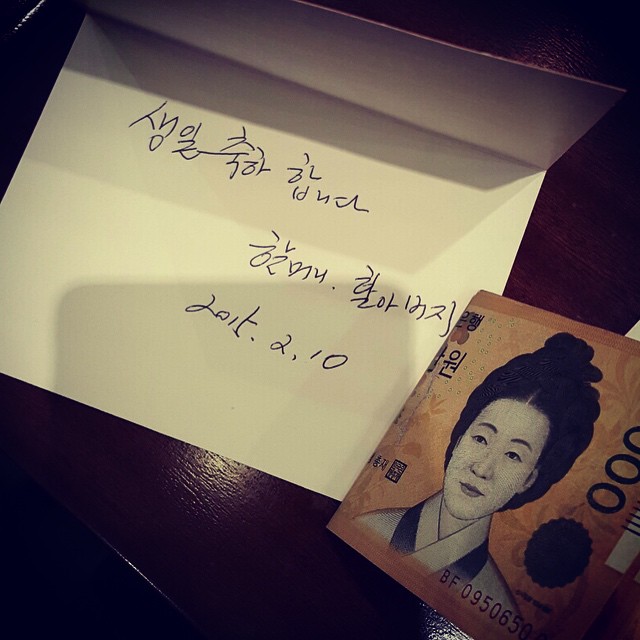 생일 축하 합니다
할머니. 할아버지
2015. 2, 10
은행
만원
총재
000
BF 0950650